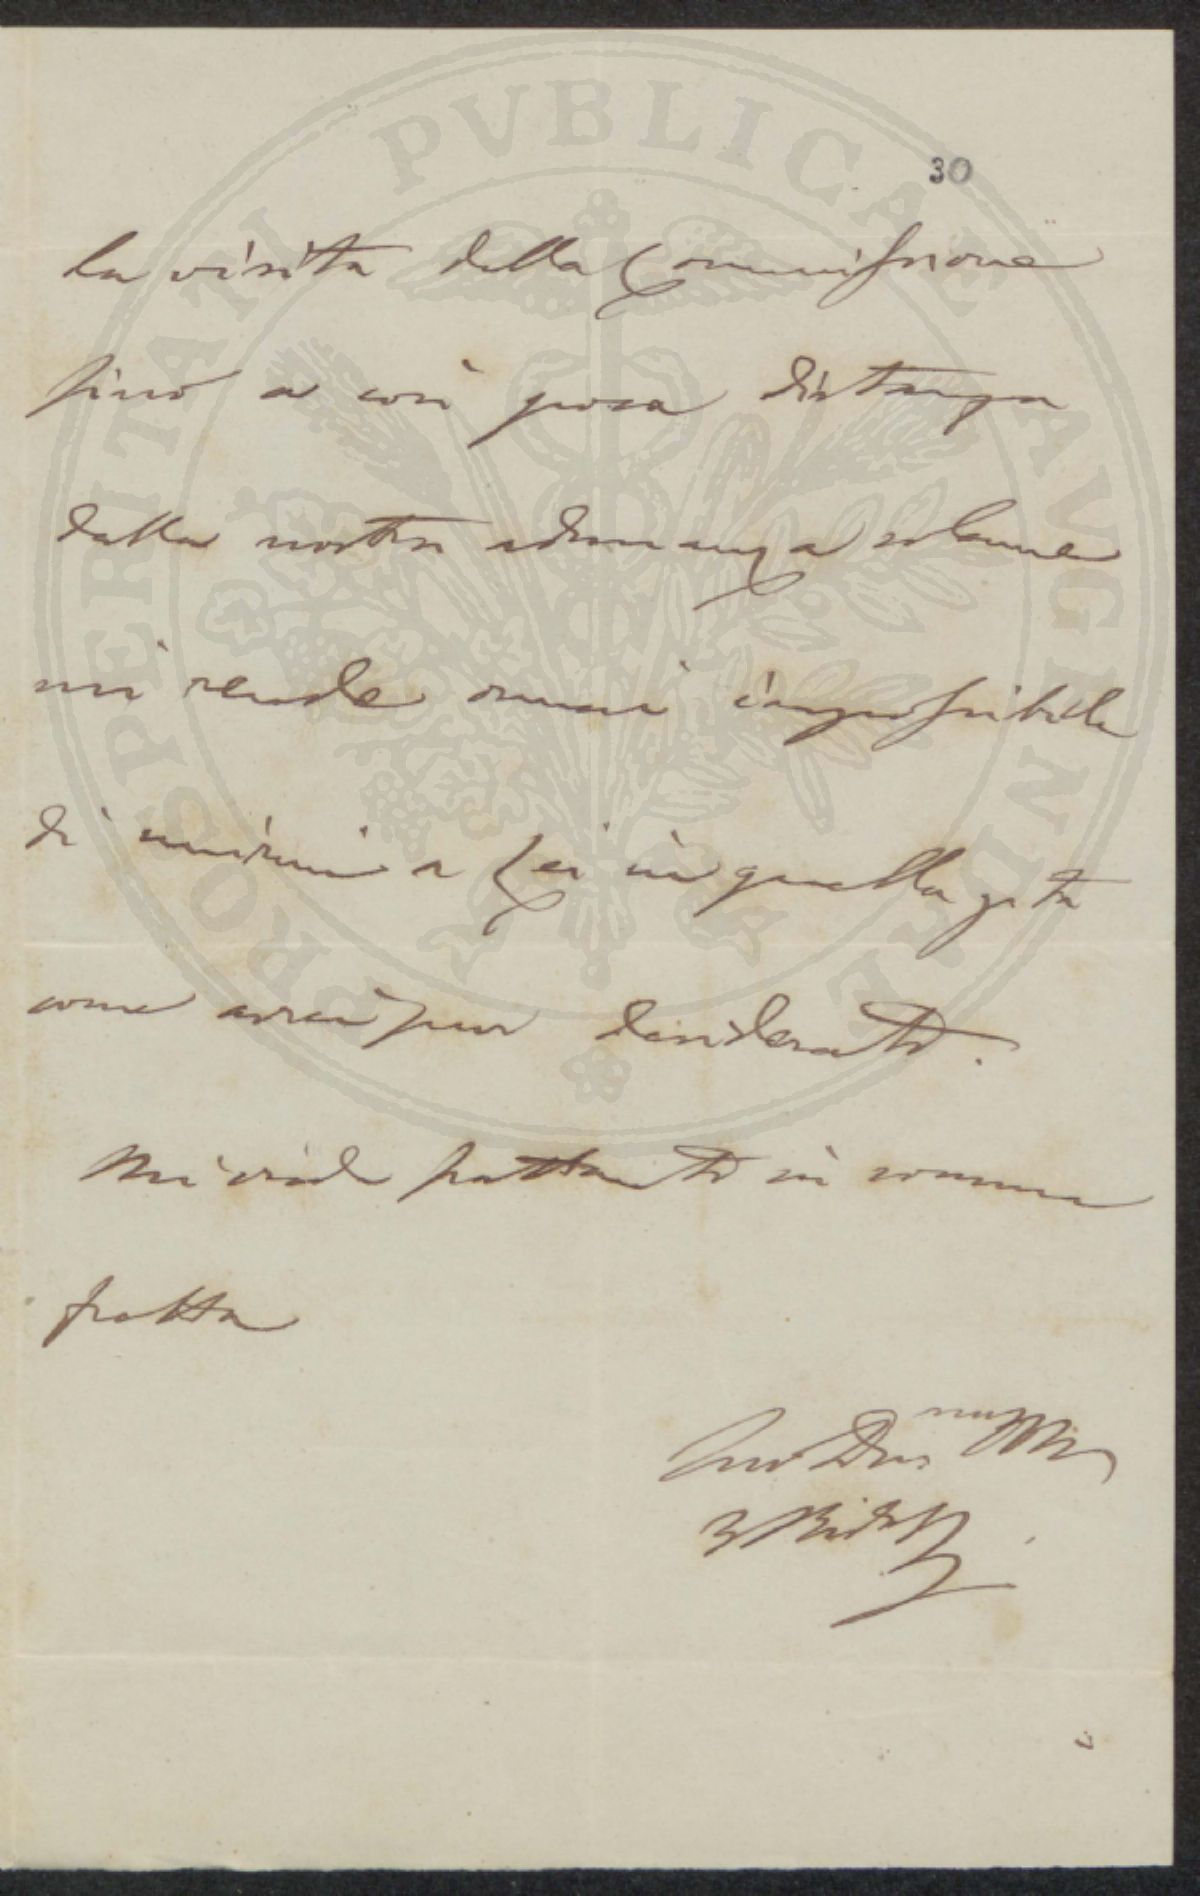 30
la visita della Commissione
fino a così poca distanza
dalla nostra adunanza solenne
mi rende omai impossibile
di unirmi a Lei in quella gita
come avrei pur desiderato.
Mi creda frattanto in somma
fretta
Suo Dev.
PROSPERITATI PVBLICAE AVGENDAE